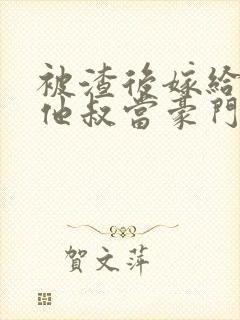 被渣後嫁給
他叔當豪門
賀文萍